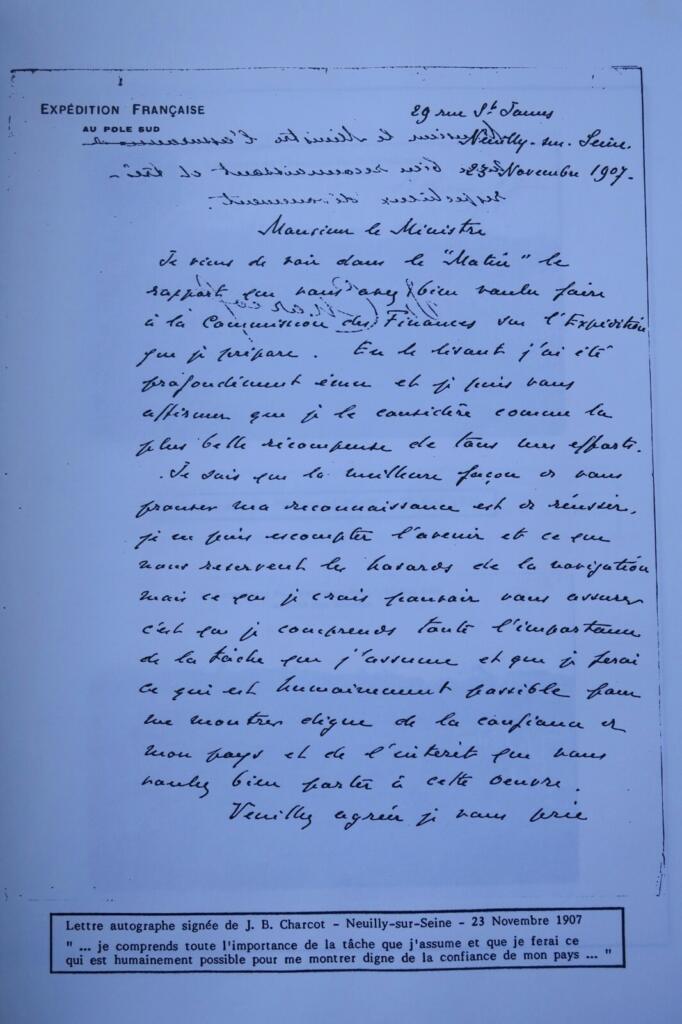 EXPÉDITION FRANÇAISE
AU POLE SUD
29 rue St James
Neuilly-sur-Seine
23 Novembre 1907-
Monsieur le Ministre
Je viens de voir dans le "Matin" le
rapport que vous avez bien voulu faire
à la Commission des Finances sur l'Expédition
que je prépare. En le lisant j'ai été
profondément ému et je puis vous
affirmer que je le considère comme la
plus belle récompense de tous mes efforts.
Je sais que la meilleure façon de vous
prouver ma reconnaissance est de réussir,
je ne puis escompter l'avenir et ce que
nous reservent les hasards de la navigation
mais ce que je crois pouvoir vous assurer
c'est que je comprends toute l'importance
de la tâche que j'assume et que je ferai
ce qui est humainement possible pour
me montrer digne de la confiance de
mon pays et de l'intérêt que vous
voulez bien porter à cette oeuvre.
Veuillez agréer je vous prie
Monsieur le Ministre l'assurance
de mon bien reconnaissant et très
respectueux dévouement.
Lettre autographe signée de J. B. Charcot - Neuilly-sur-Seine - 23 Novembre 1907
" ... je comprends toute l'importance de la tâche que j'assume et que je ferai ce
qui est humainement possible pour me montrer digne de la confiance de mon pays ... "